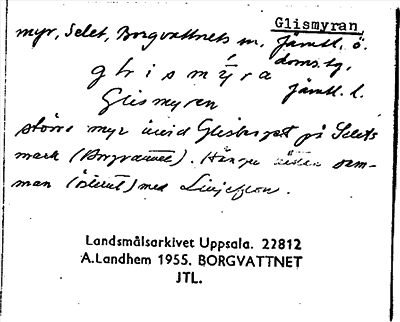 Glismyran
myr, Selet, Borgvattnets sn, Jämtl. ö.
doms.tg.
Jämtl. l.
Glismyran
större myr invid Glisberget på Selets
mark (Borgvattnet). Hänger sam-
man (österut) med Linjeflon.
Landsmålsarkivet Uppsala. 22812
A.Landhem 1955. BORGVATTNET
JTL.